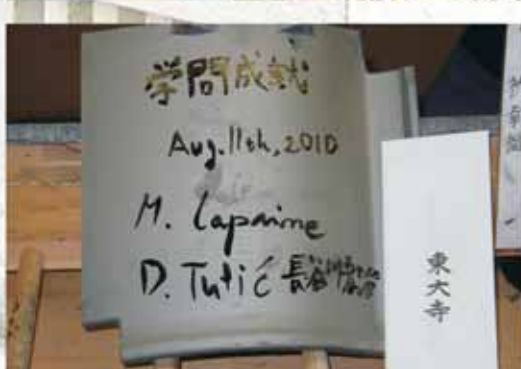 学問成就
Aug. 11th, 2010
M. Lapaine
D. Tutić 長谷川
東大寺